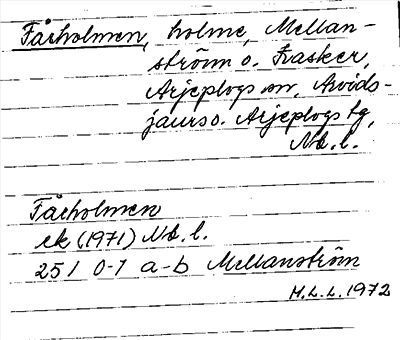 Fårholmen, holme, Mellan-
ström o. Frasker,
Arjeplogs sn, Arvids-
jaurs o. Arjeplogs tg,
Nb. l.
Fårholmen
ek (1971) Nb. l.
25 I 0-1 a-b Mellanström
M.L.L. 1972